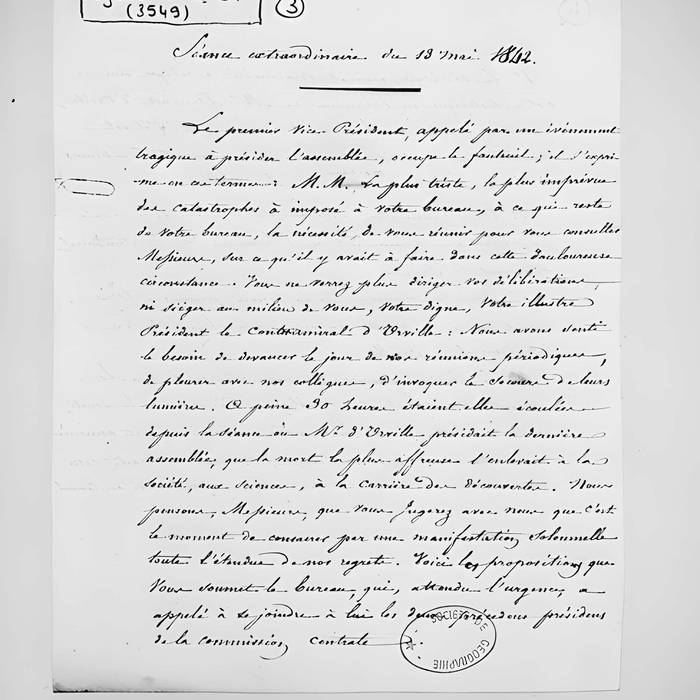 (3549) 3
Séance extraordinaire du 13 mai 1842.
Le premier Vice Président, appelé par un événement
tragique à présider l'assemblée, occupe le fauteuil; il s'expri-
me en ces termes: M.M. La plus triste, la plus imprévue
des catastrophes à imposé à votre bureau, à ce qui reste
de votre bureau, la nécessité, de vous réunir pour vous consulter
Messieurs, sur ce qu'il y avait à faire dans cette douloureuse
circonstance. Vous ne verrez plus diriger vos délibérations
ni siéger au milieu de vous, votre digne, votre illustre
Président le Contramiral d'Urville: Nous avons senti
le besoin de devancer le jour de nos réunions périodiques,
de pleurer avec nos collègues, d'invoquer le secours de leurs
lumières. A peine 30 heures étaient elles écoulées
depuis la séance où Mr. d'Urville présidait la dernière
assemblée, que la mort la plus affreuse l'enlevait à la
société, aux sciences, à la carrière des découvertes. Nous
pensons, Messieurs, que vous jugerez avec nous que c'est
le moment de consacrer par une manifestation solennelle
toute l'étendue de nos regrets. Voici les propositions que
Vous soumet le bureau qui, attendu l'urgence, a
appelé à se joindre à lui les deux précédens présidens
de la commission centrale.
SOCIÉTÉ DE GEOGRAPHIE